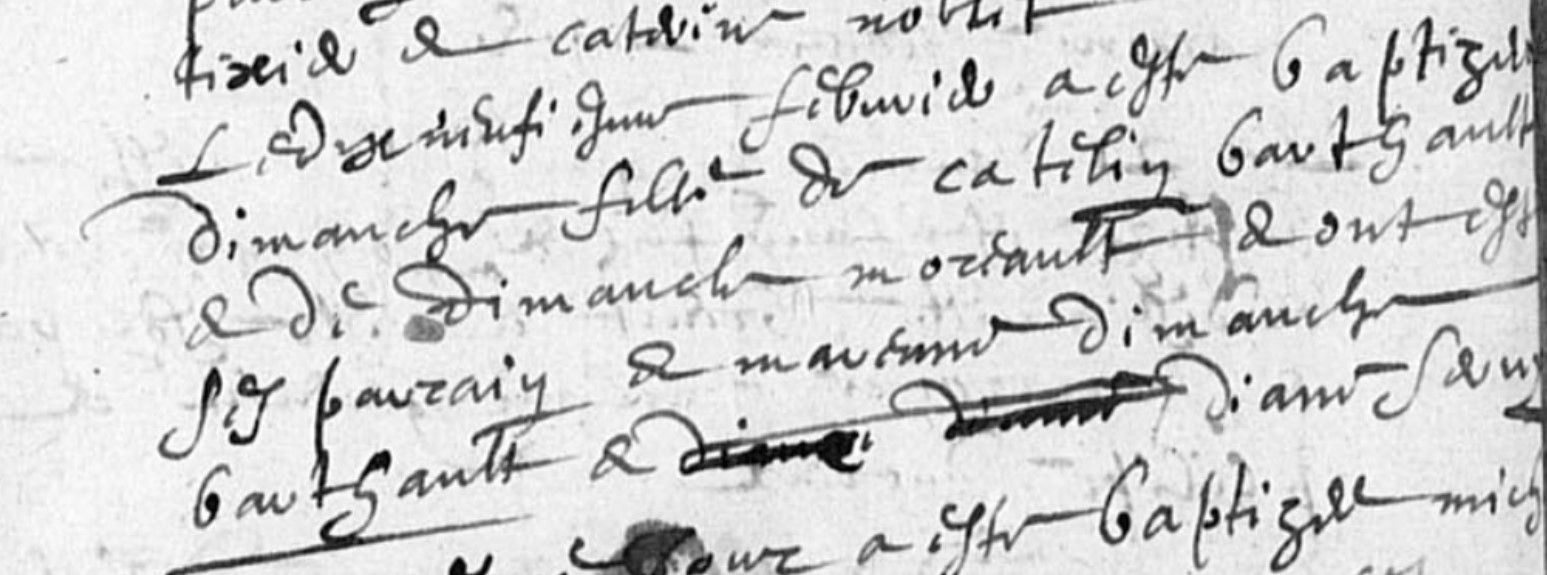 & caterine noblet
Le dixneufiesme febvrier a este baptizee
dimanche fille de catelin barthault
& de dimanche moreault & ont este
ses parrain & marenne dimanche
barthault & diane
jour a este baptizee mich